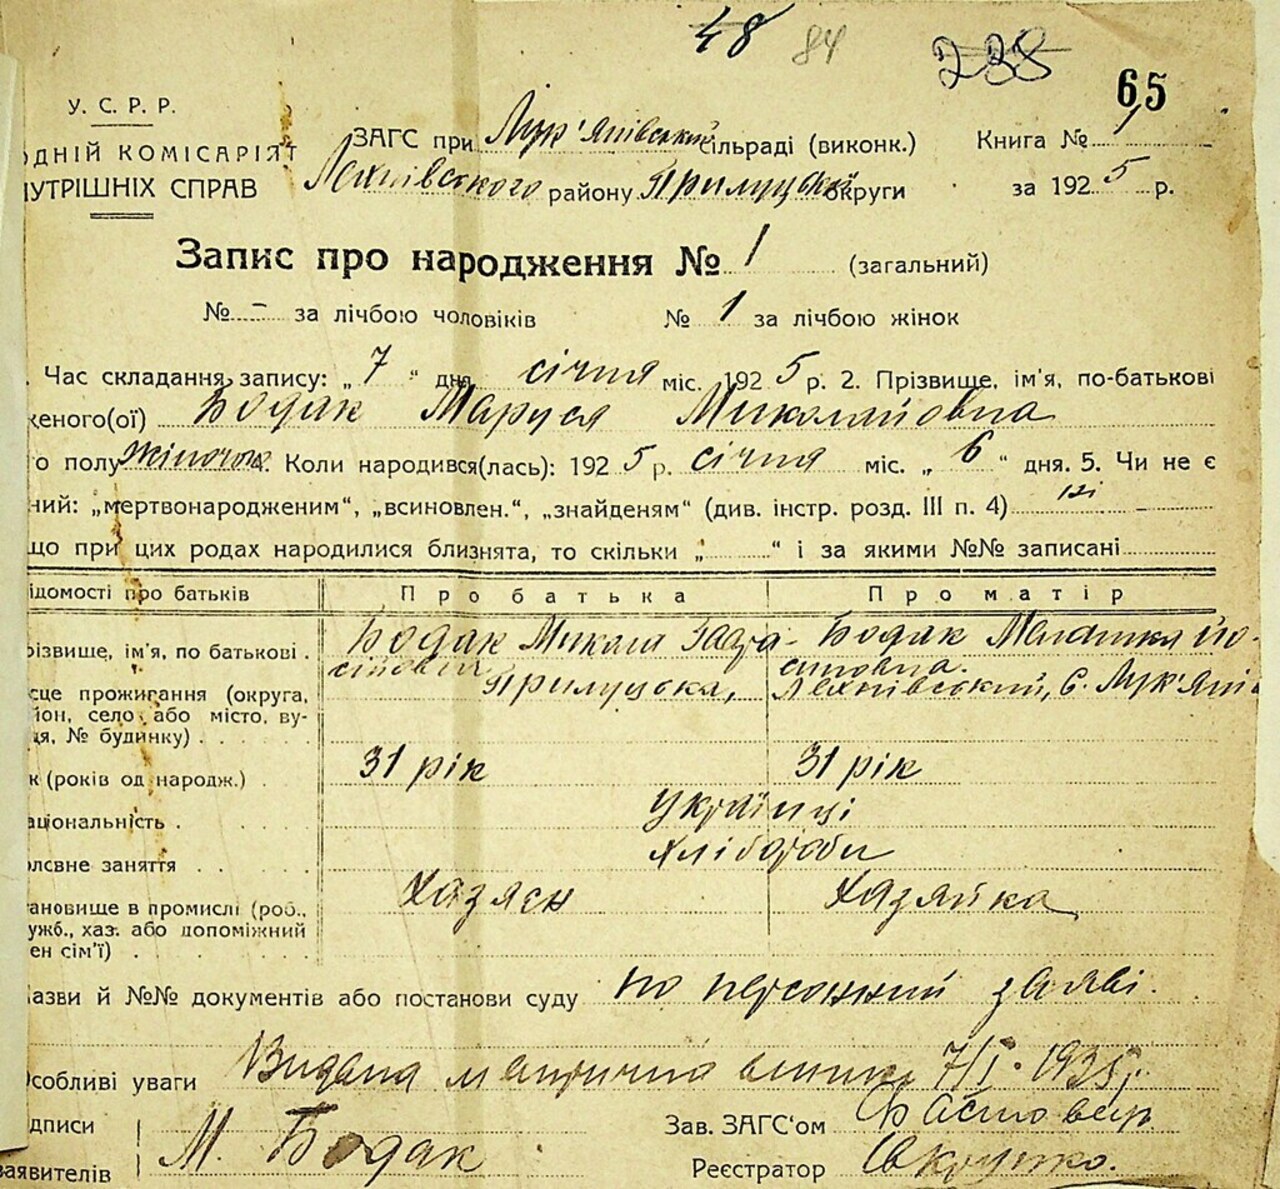 48 84 238
65
У. С. Р. Р.
ОДНІЙ КОМІСАРІЯТ
НУТРІШНІХ СПРАВ
ЗАГС при Лук'янівській сільраді (виконк.) Книга №
Лехнівського району Прилуцької округи за 1925 р.
Запис про народження № 1 (загальний)
№ - за лічбою чоловіків № 1 за лічбою жінок
. Час складання запису: „7“ дня січня міс. 1925 р. 2. Прізвище, ім'я, по-батькові
женого(ої) Бодак Маруся Миколайовна
о полу жіночого. Коли народився(лась): 1925 р. січня міс. „6“ дня. 5. Чи не є
ний: „мертвонародженим“, „всиновлен.“, „знайденям“ (див. інстр. розд. III п. 4) ні -
що при цих родах народилися близнята, то скільки „ “ і за якими №№ записані
ідомості про батьків Про батька Про матір
різвище, ім'я, по батькові . Бодак Микола Бодак Мелашка Йо-
сиповна.
сце прожигання (округа, Прилуцька, Лехнівський, с. Лук'яні
йон, село або місто, ву-
ця, № будинку) .
к (років од народж.) . 31 рік 31 рік
аціональність . Українці
олсвне заняття . . хлібороби
тановище в промислі (роб., Хазяєн Хазяйка
ужб., хаз. або допоміжний
ен сім'ї) .
Назви й №№ документів або постанови суду по персонний заяві.
Особліві уваги Видана метрична 7/I. 193
дписи Зав. ЗАГС'ом
заявителів М. Бодак Реєстратор